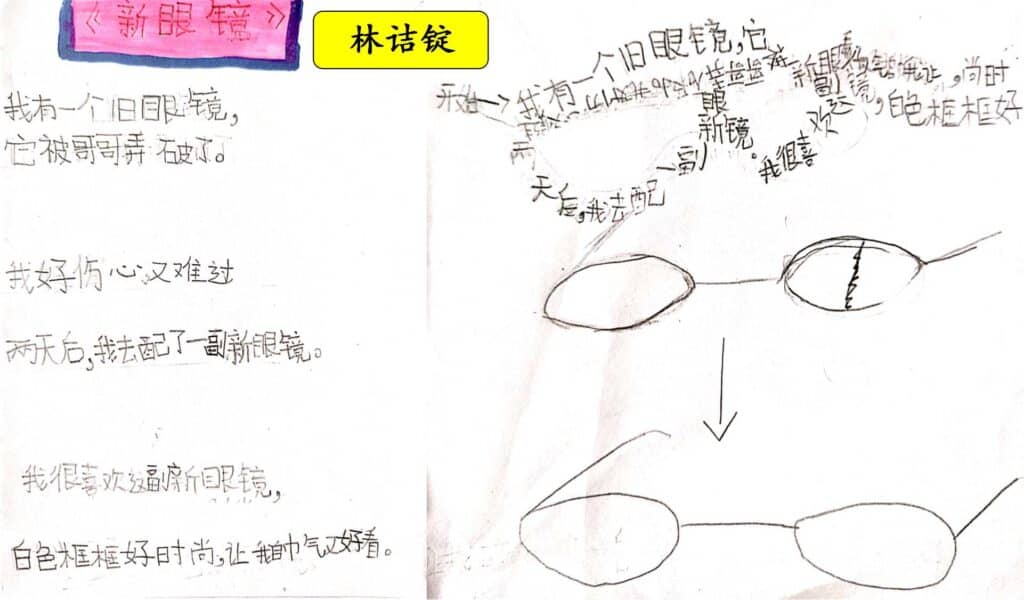 《新眼镜》
林诘锭
我有一个旧眼镜,
它被哥哥弄破了。
我好伤心,又难过
两天后,我去配了一副新眼镜。
我很喜欢这副新眼镜,
白色框框好时尚,让我帅气又好看。
开始→我有一个旧眼镜,它
天后,我去配
一副
新眼镜。
我很喜欢这副新眼镜,白色框框好
时尚,